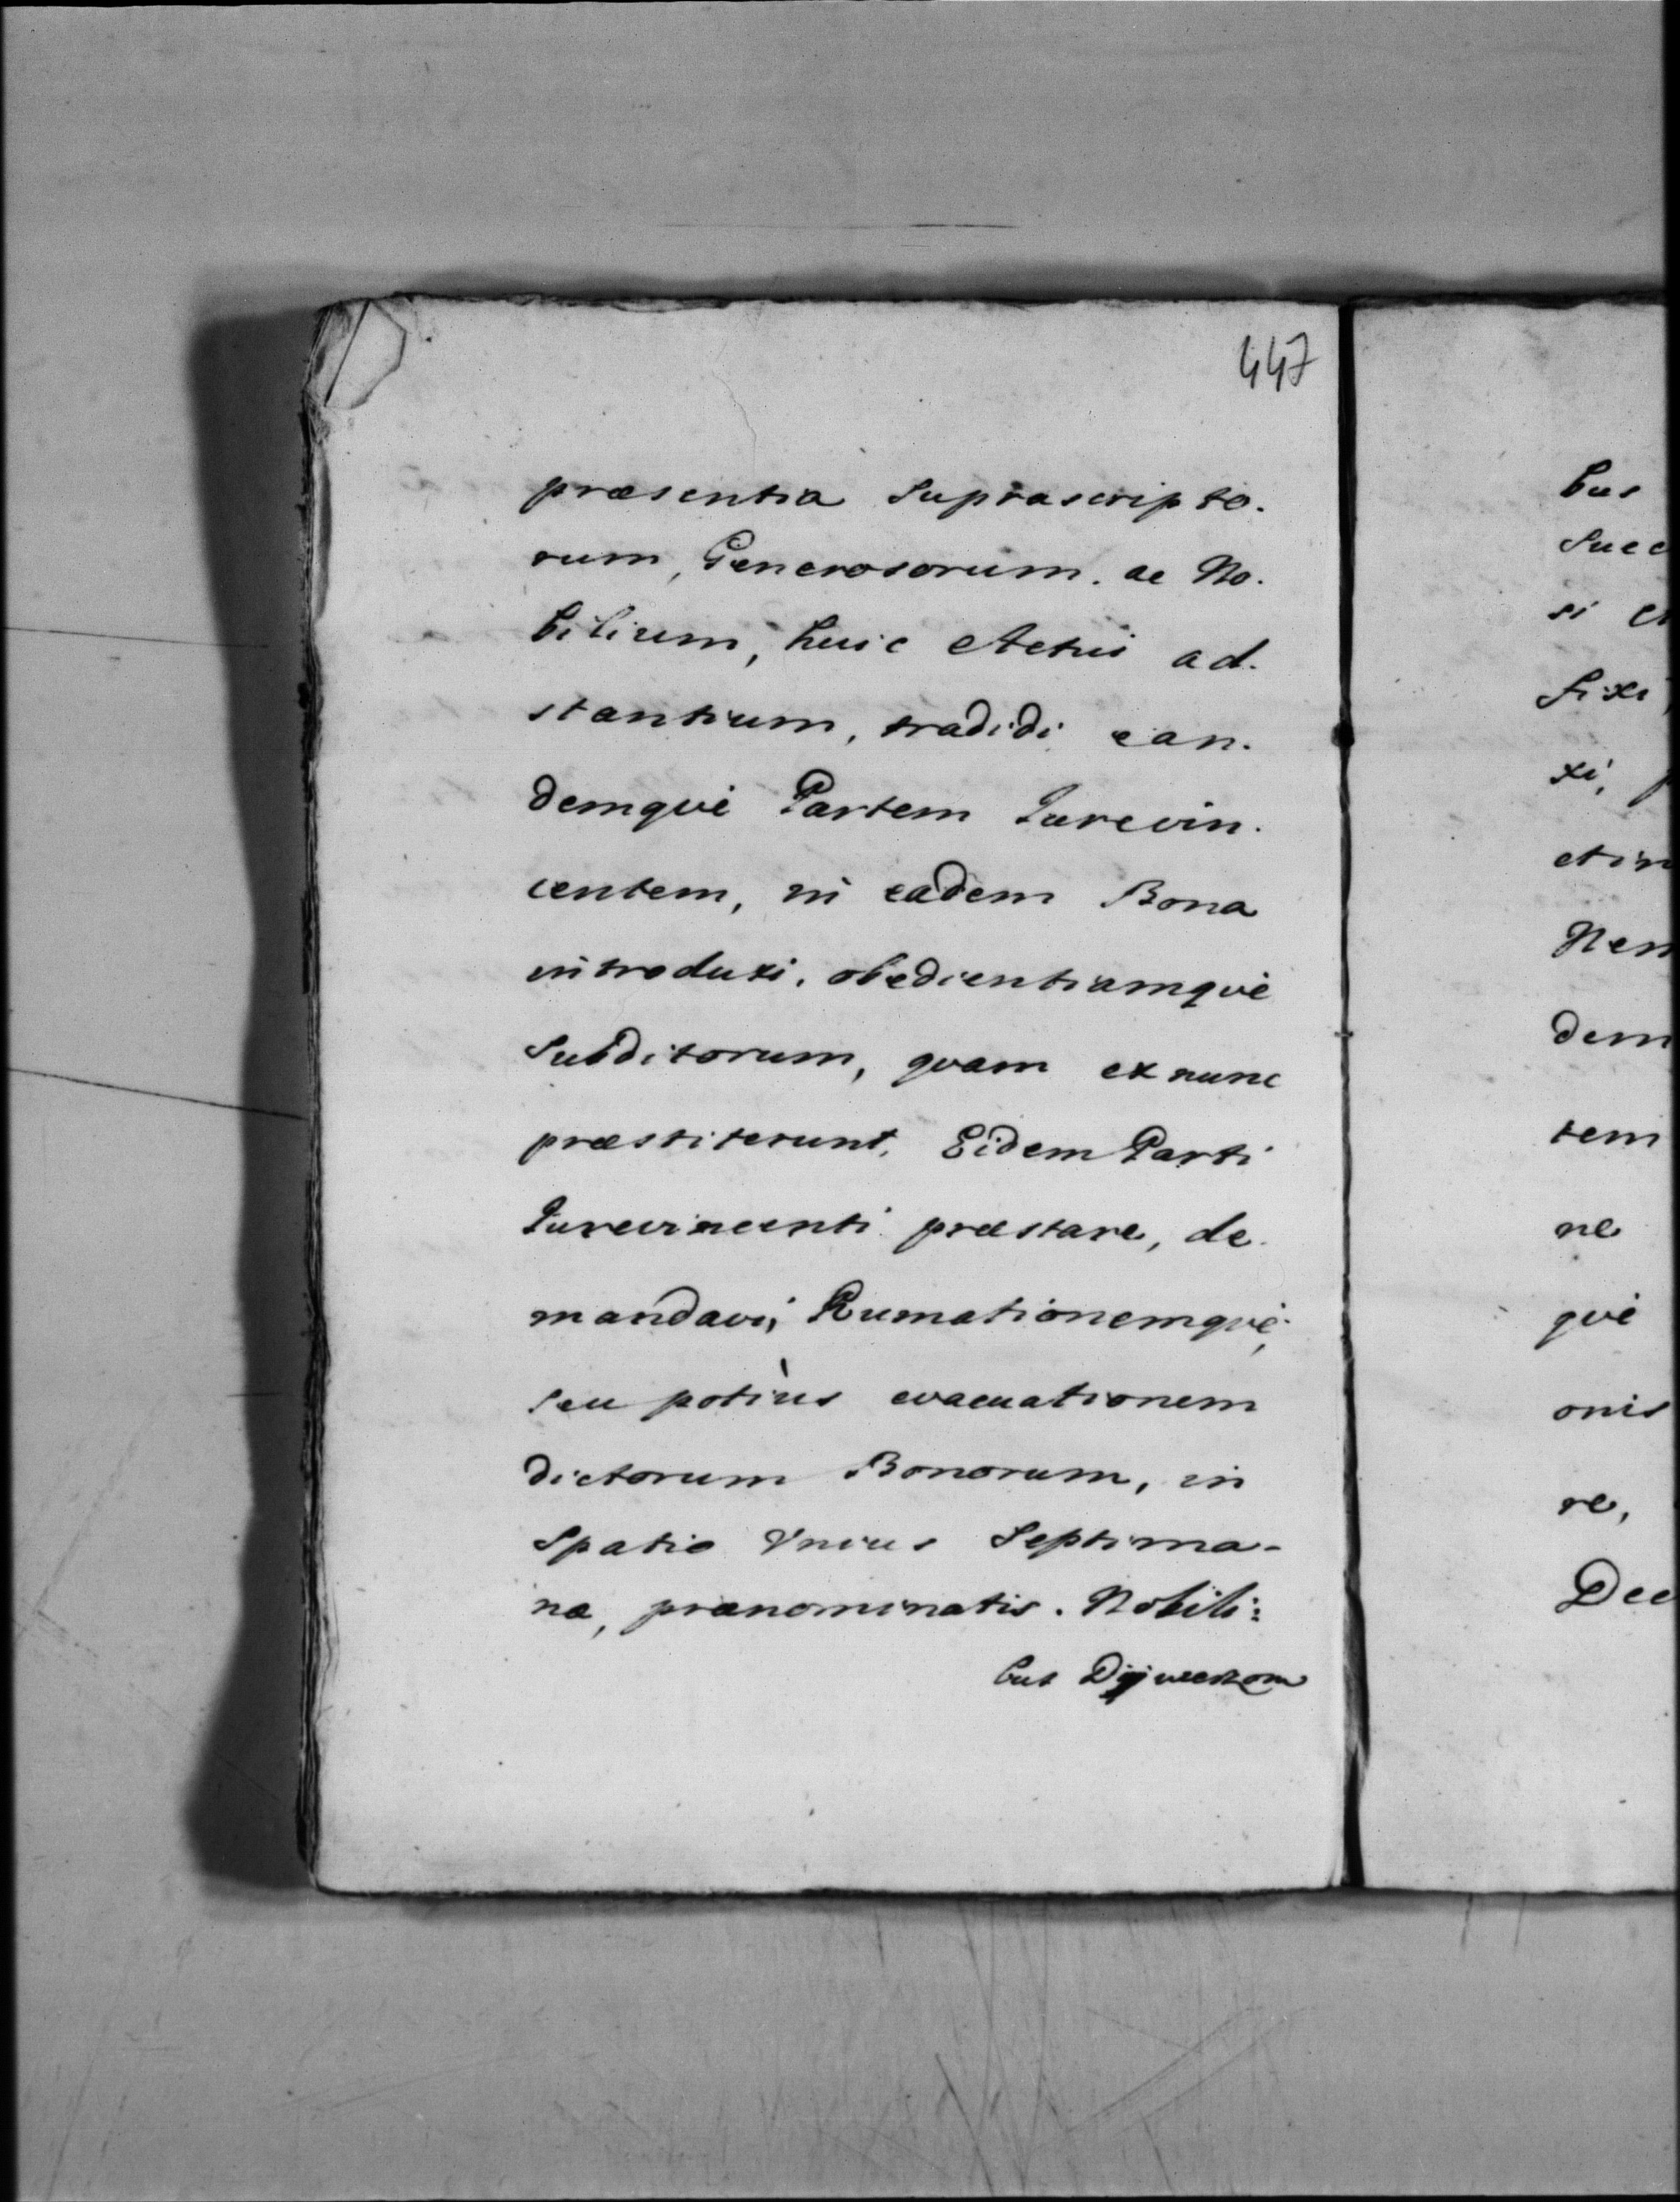 447
præsentia Suprascripto.
rum, Generosorum. ac No.
bilium, huic Actui ad.
stantium, tradidi ean.
demque Partem Jurevin.
centem, in eadem Bona
introduxi, obedientiamque
Subditorum, quam ex nunc
præstiterunt, Eidem Parti
Jurevincenti præstare, de.
mandavi, Rumationemque,
seu potiùs evacuationem
dictorum Bonorum, in
Spatio Vnius Septima-
næ, prænominatis. Nobili:
bus
bus
Succ
si et
fixi
xi,
et in
Nen
dem
tem
ne
que
onis
re,
Dec